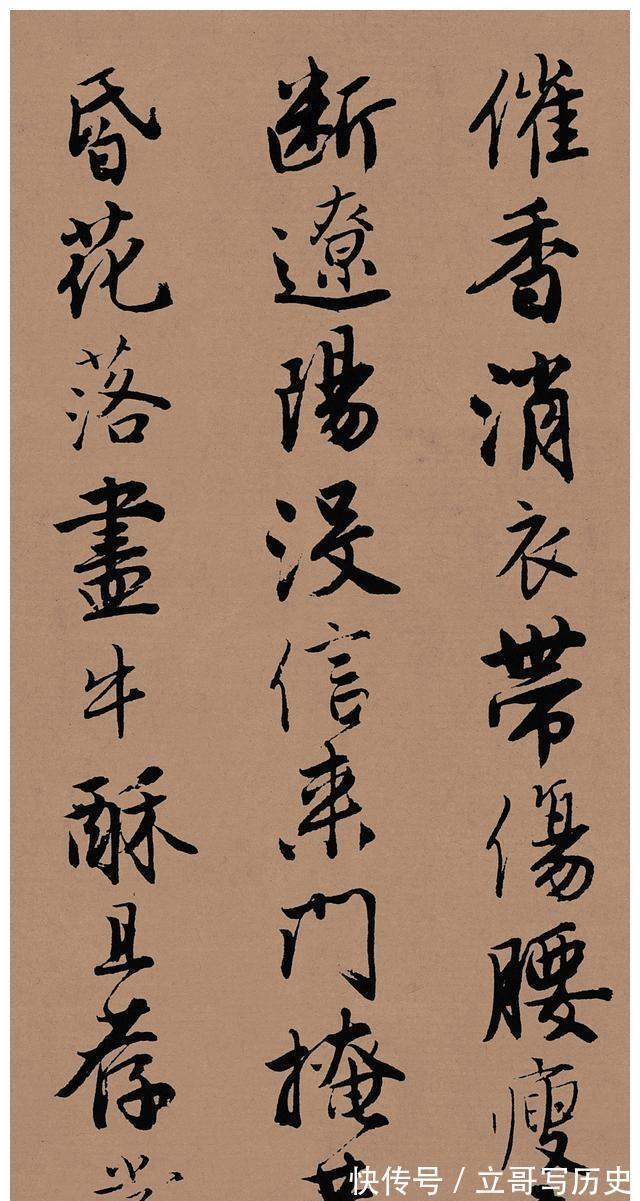 催香消衣帶傷腰瘦
斷遼陽沒信來門掩
昏花落盡牛酥且存
快传号 / 立哥写历史